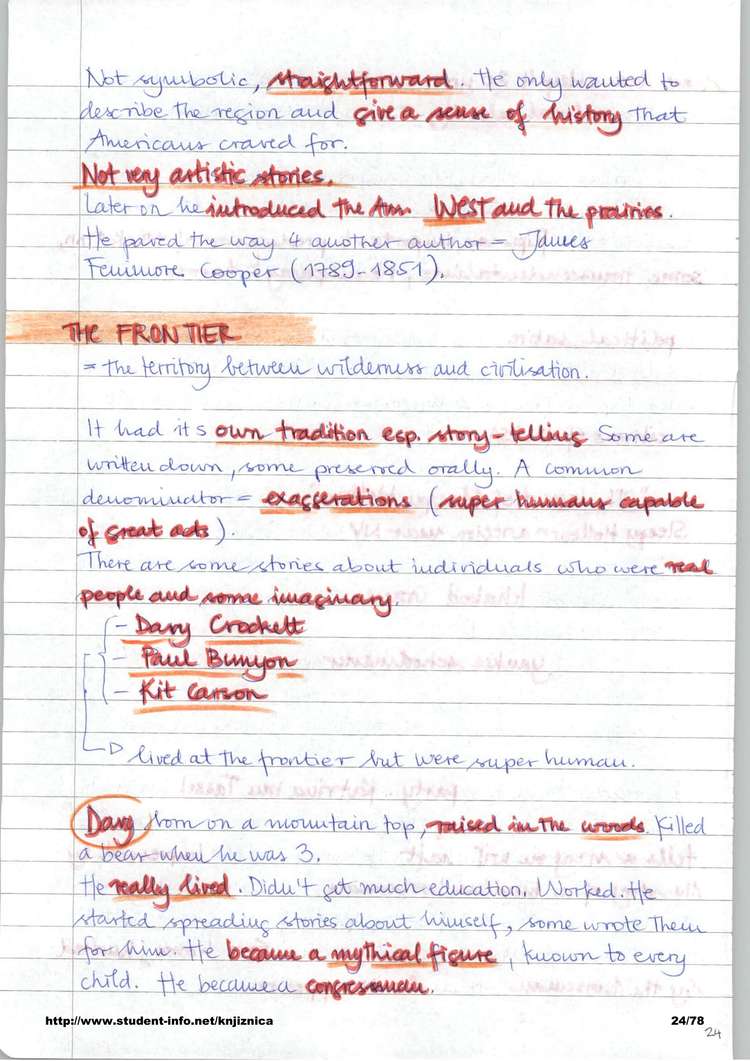 Not symbolic, straightforward. He only wanted to
describe the region and give a sense of history that
Americans craved for.
Not very artistic stories.
Later on he introduced the Am. West and the prairies.
He paved the way 4 another author = James
Fenimore Cooper (1789-1851).
THE FRONTIER
= the territory between wilderness and civilisation.
It had its own tradition esp. story-telling. Some are
written down, some preserved orally. A common
denominator = exaggerations (super humans capable
of great acts).
There are some stories about individuals who were real
people and some imaginary.
- Davy Crockett
- Paul Bunyon
- Kit Carson
lived at the frontier but were super human.
Davy born on a mountain top, raised in the woods. Killed
a bear when he was 3.
He really lived. Didn't get much education. Worked. He
started spreading stories about himself, some wrote them
for him. He became a mythical figure, known to every
child. He became a congressman.
http://www.student-info.net/knjiznica
24/78
24